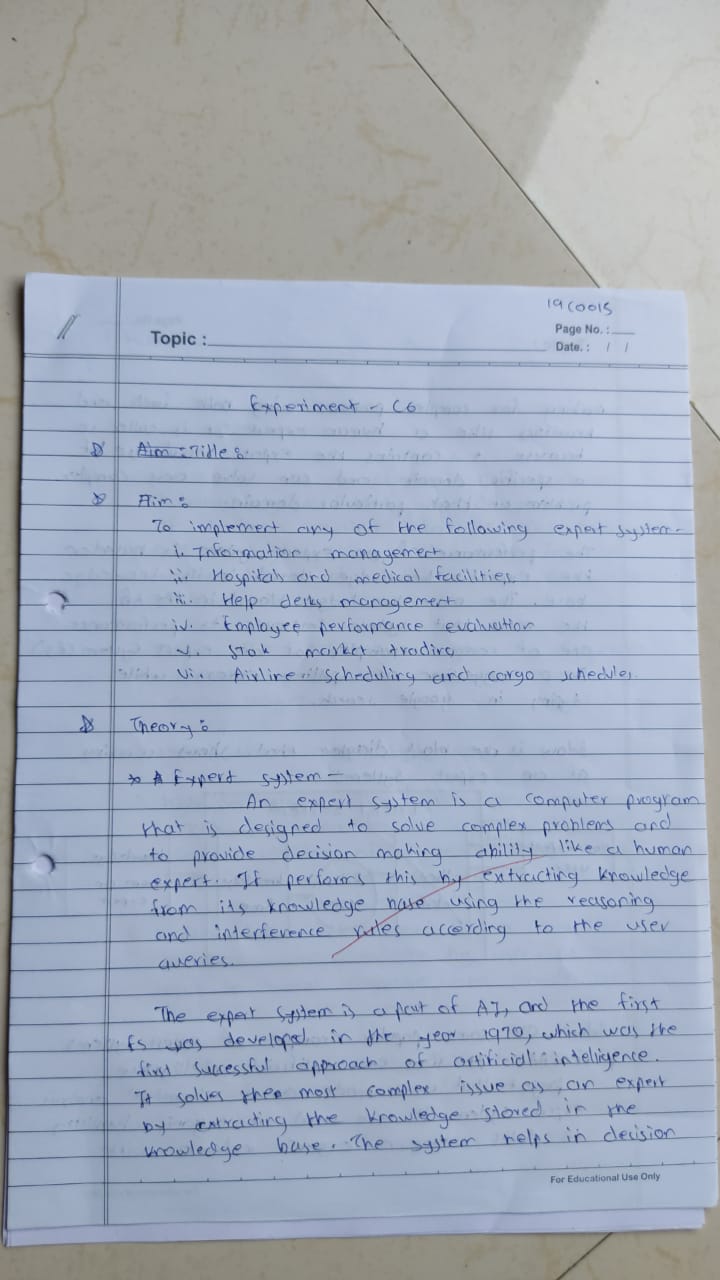 19CO015
Page No. :
Topic :
Date. : / /
Experiment - C6
Aim : Title :
Aim :
To implement any of the following expert system -
i. Information management
ii. Hospitals and medical facilities
iii. Help desks management
iv. Employee performance evaluation
v. Stok market trading
vi. Airline scheduling and cargo schedules
Theory :
Expert system -
An expert system is a computer program
that is designed to solve complex problems and
to provide decision making ability like a human
expert. It performs this by extracting knowledge
from its knowledge base using the reasoning
and interference rules according to the user
queries.
The expert system is a part of AI, and the first
ES was developed in the year 1970, which was the
first successful approach of artificial intelligence.
It solves the most complex issue as an expert
by extracting the knowledge stored in the
knowledge base. The system helps in decision
For Educational Use Only